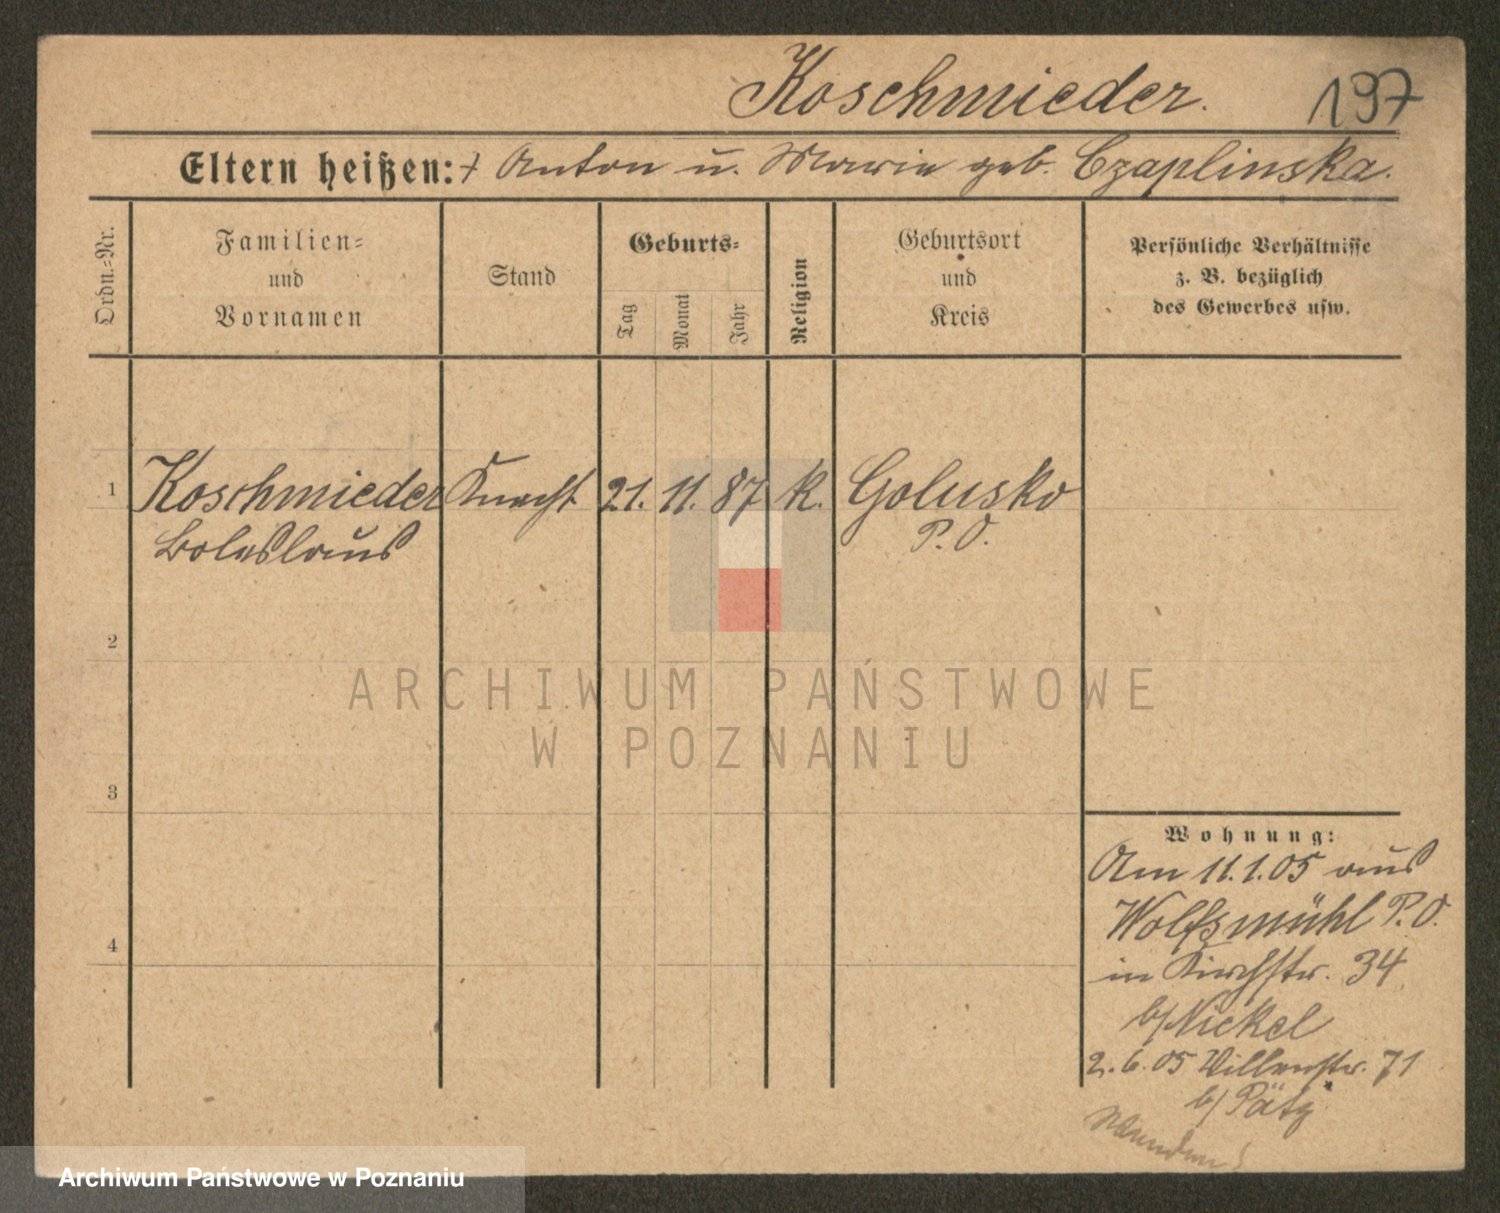 Koschmieder. 197
Eltern heißen: † Anton u. Marie geb. Czaplinska.
Ordn.-Nr.
Familien-
und
Vornamen
Stand
Geburts-
Tag
Monat
Jahr
Religion
Geburtsort
und
Kreis
Persönliche Verhältnisse
z. B. bezüglich
des Gewerbes usw.
1 Koschmieder Knecht 21. 11. 87 k. Golusko
Boleslaus P. O.
2
3
4
ARCHIWUM PAŃSTWOWE
W POZNANIU
Wohnung:
Am 11.1.05 aus
Wolfsmühl P. O.
in Kirchstr. 34
b/ Nickel
2.6.05 Villenstr. 71
b/ Pätz
Wenden!
Archiwum Państwowe w Poznaniu